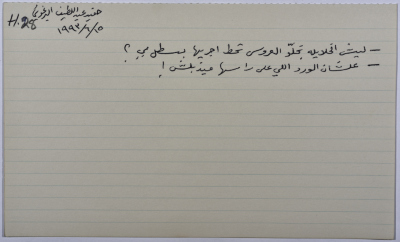 H.28
عبد اللطيف البرغوثي
١٩٩٣/٦/١٥
– ليش الخلايله بتحلّو العروس تحط اجريها بسطل مي ؟
– علشان الورد اللي على راسها ميذبلش !